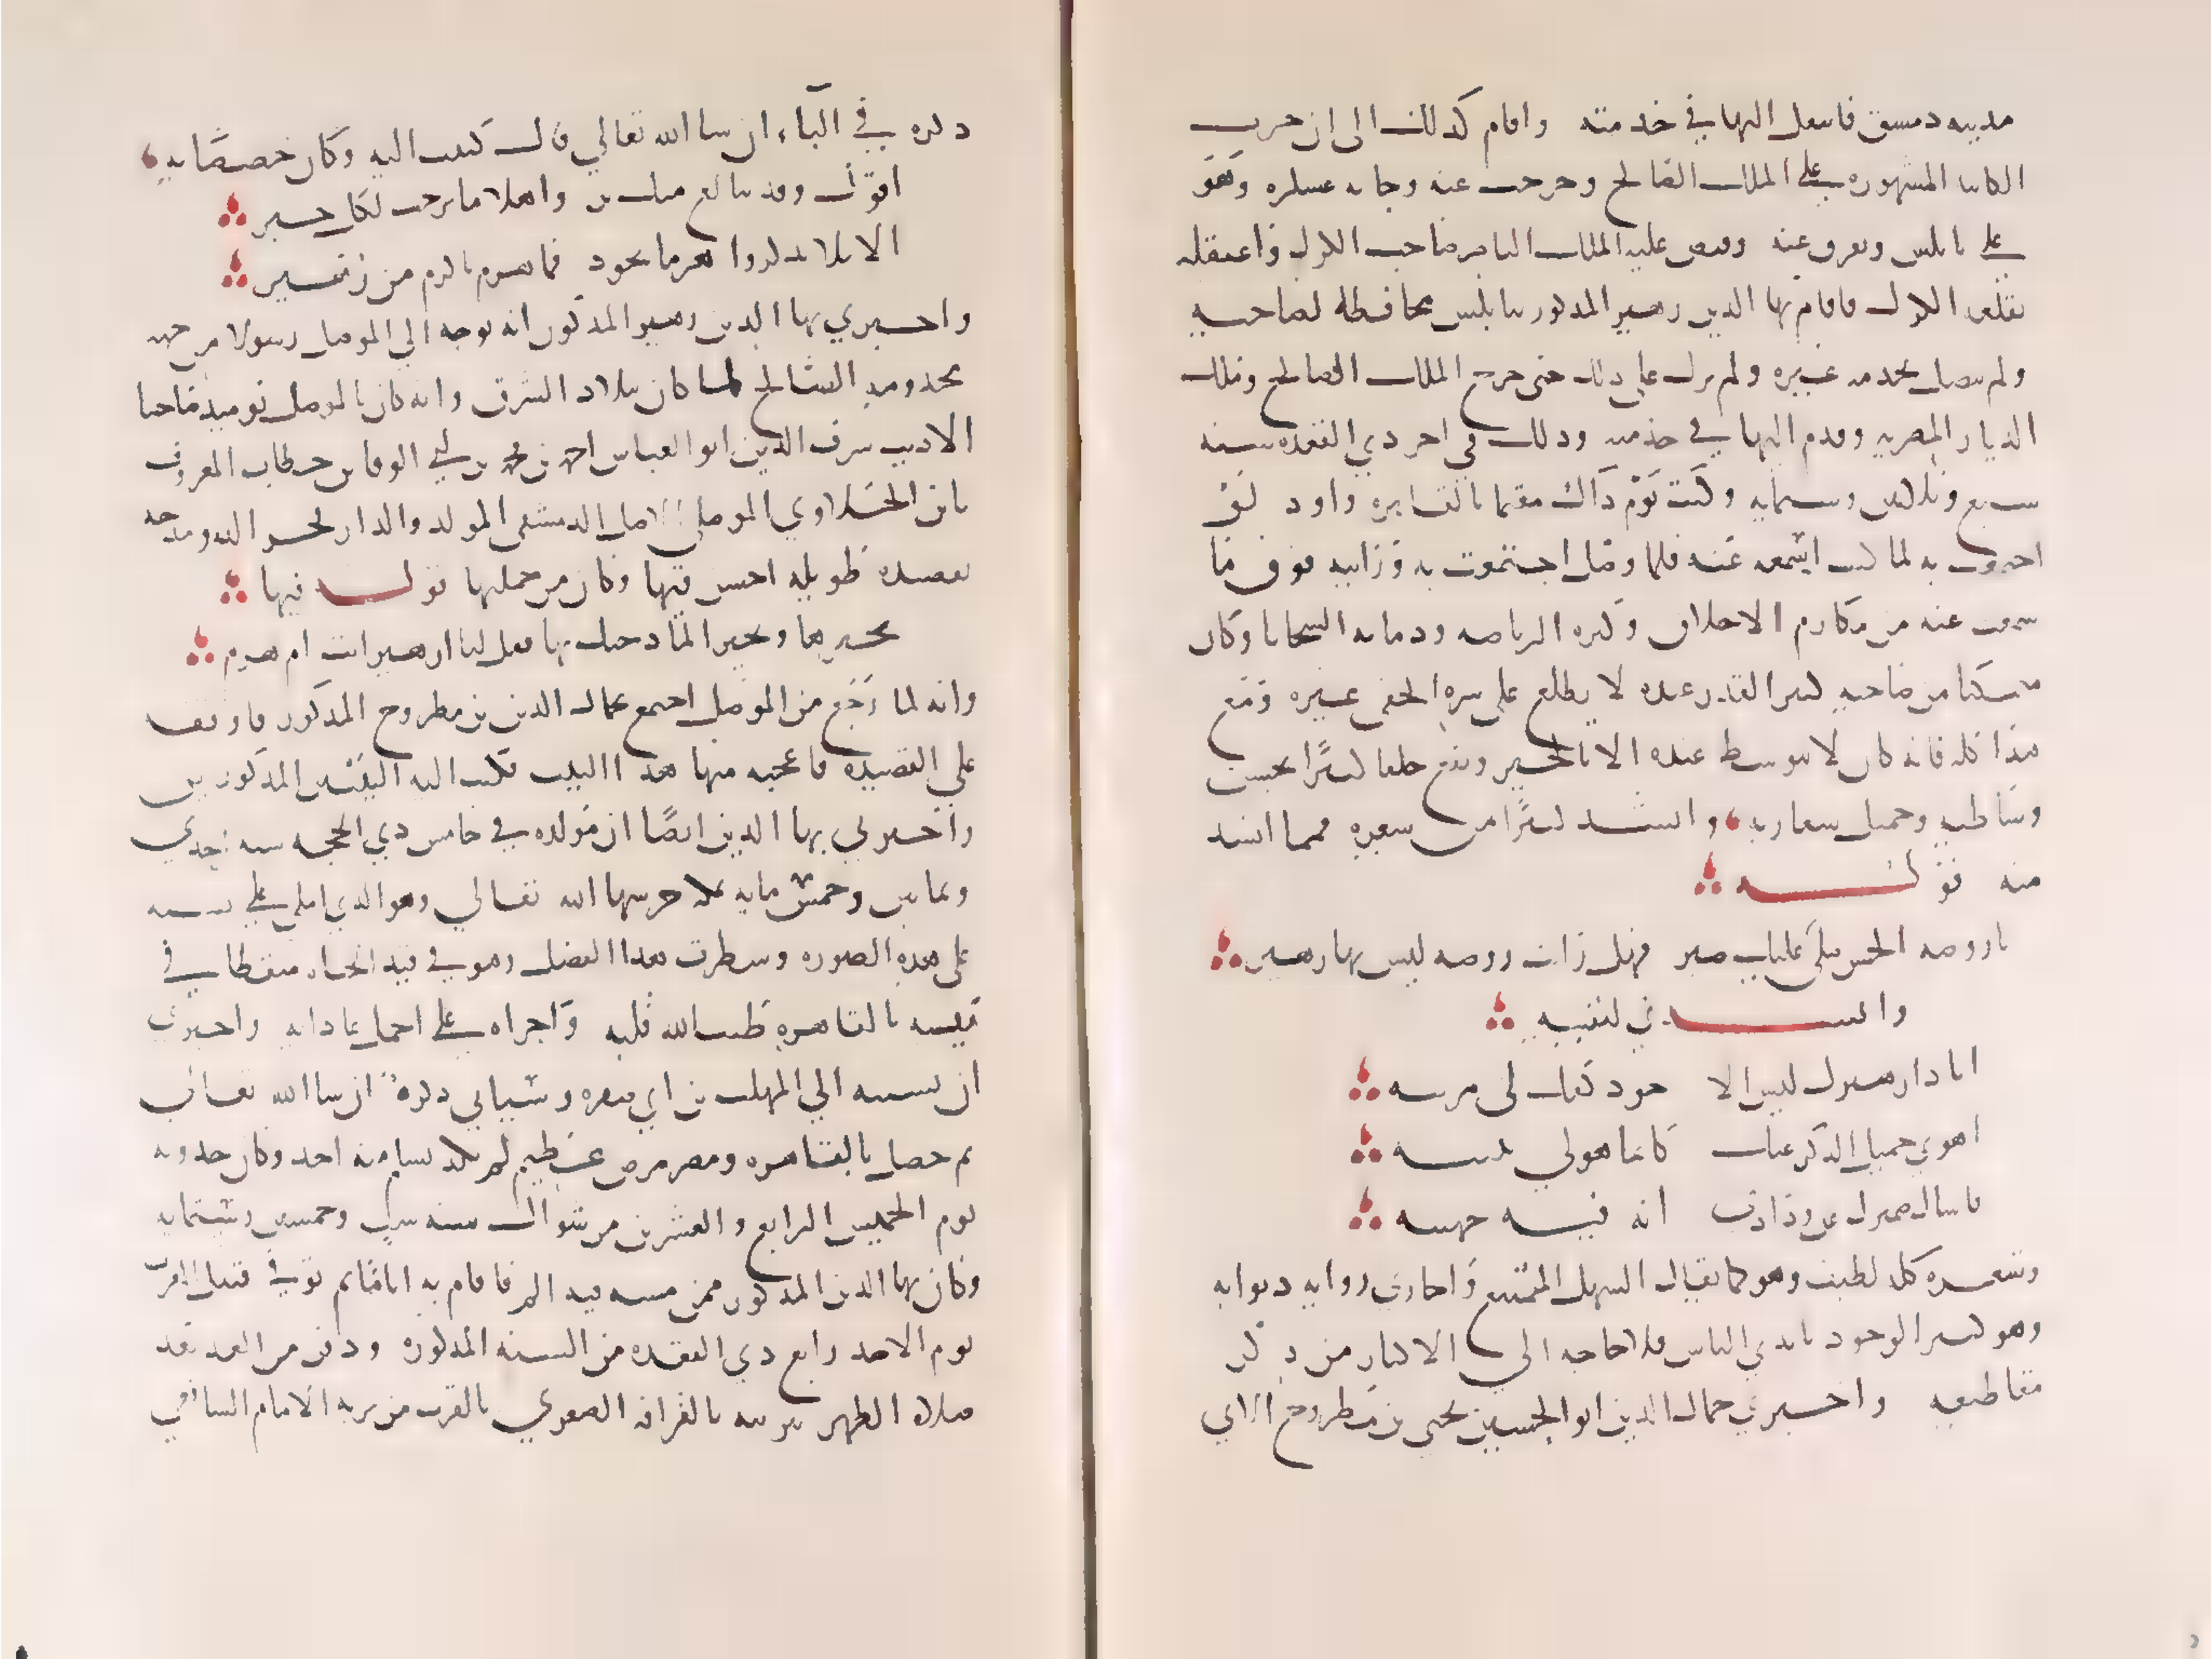 مدينه دمشق فانتقل اليها في خدمته واقام كذلك الى ان جرت
الكاينه المشهوره على الملك الصالح وخرجت عنه وخانه عسكره وهو
على نابلس وتفرق عنه وقبض عليه الملك الناصر صاحب الكرك واعتقله
بقلعه الكرك فاقام بها الدين زهير المذكور بنابلس محافظة لصاحبه
ولم يتصل بخدمه غيره ولم يزل على ذلك حتى خرج الملك الصالح وملك
الديار المصريه وقدم اليها في خدمته وذلك في اخر ذي القعده سنه
سبع وثلاثين وستمايه وكنت يوم ذاك مقيما بالقاهره واود لو
اجتمعت به لما كنت اسمعه عنه فلما وصل اجتمعت به ورايته فوق ما
سمعت عنه من مكارم الاخلاق وكثره الرياضه ودماثه السجايا وكان
متمكنا من صاحبه كبير القدر عنده لا يطلع على سره الخفي غيره ومع
هذا كله فانه كان لا يتوسط عنده الا بالخير ونفع خلقا كثيرا بحسن
وساطته وجميل سفارته وانشدني كثيرا من شعره فمما انشدني
منه قوله
يا روضه الحسن صلي فما عليك ضير فهل رات روضه ليس بها زهير
وانشدني لنفسه
انا ذا زهيرك ليس الا جود كفك لي مزينه
اهوى جميل الذكر عنك كانما هو لي بثينه
فاسال ضميرك عن ودادي انه فيه جهينه
وشعره كله لطيف وهو كما يقال السهل الممتنع واجازني روايه ديوانه
وهو كثير الوجود بايدي الناس فلا حاجه الى الاكثار من ذكر
مقاطيعه واخبرني جمال الدين ابو الحسين يحيى بن مطروح الاتي
ذكره في الياء ان شا الله تعالي قال كتبت اليه وكان خصيصا به
اقول وقد تتابع منك بر واهلا ما برحت لكل خير
الا لا تذكروا هرما بجود فما هرم باكرم من زهير
واخبرني بها الدين زهير المذكور انه توجه الي الموصل رسولا من جهه
مخدومه الصالح لما كان ببلاد الشرق وانه كان بالموصل يوميذ صاحبنا
الاديب شرف الدين ابو العباس احمد بن محمد بن ابي الوفا بن خطاب المعروف
بابن الحلاوي الموصلي الاصل الدمشقي المولد والدار فحضر اليه ومدحه
بقصيده طويله احسن فيها وكان من جملتها قوله فيها
تجيزها وتجيز المادحيك بها فقل لنا ازهير انت ام هرم
وانه لما رجع من الموصل اجتمع بجمال الدين بن مطروح المذكور فاوقفه
على القصيده فاعجبه منها هذا البيت فكتب اليه البيتين المذكورين
واخبرني بها الدين ايضا ان مولده في خامس ذي الحجه سنه احدي
وثمانين وخمس مايه بمكه حرسها الله تعالي وهو الذي املى علي نسبه
على هذه الصوره وسطرت هذا الفصل وهو في قيد الحياه منقطعا في
بيته بالقاهره طيب الله قلبه واجراه على اجمل عاداته واخبرني
ان نسبه الي المهلب بن ابي صفره وسياتي ذكره ان شا الله تعالى
ثم حصل بالقاهره ومصر مرض عظيم لم يكد يسلم منه احد وكان حدوثه
يوم الخميس الرابع والعشرين من شوال سنه ست وخمسين وستمايه
وكان بها الدين المذكور ممن مسه منه الم فاقام به اياما ثم توفي قبيل المغرب
يوم الاحد رابع ذي القعده من السنه المذكوره ودفن من الغد بعد
صلاه الظهر بتربته بالقرافه الصغري بالقرب من تربه الامام الشافعي